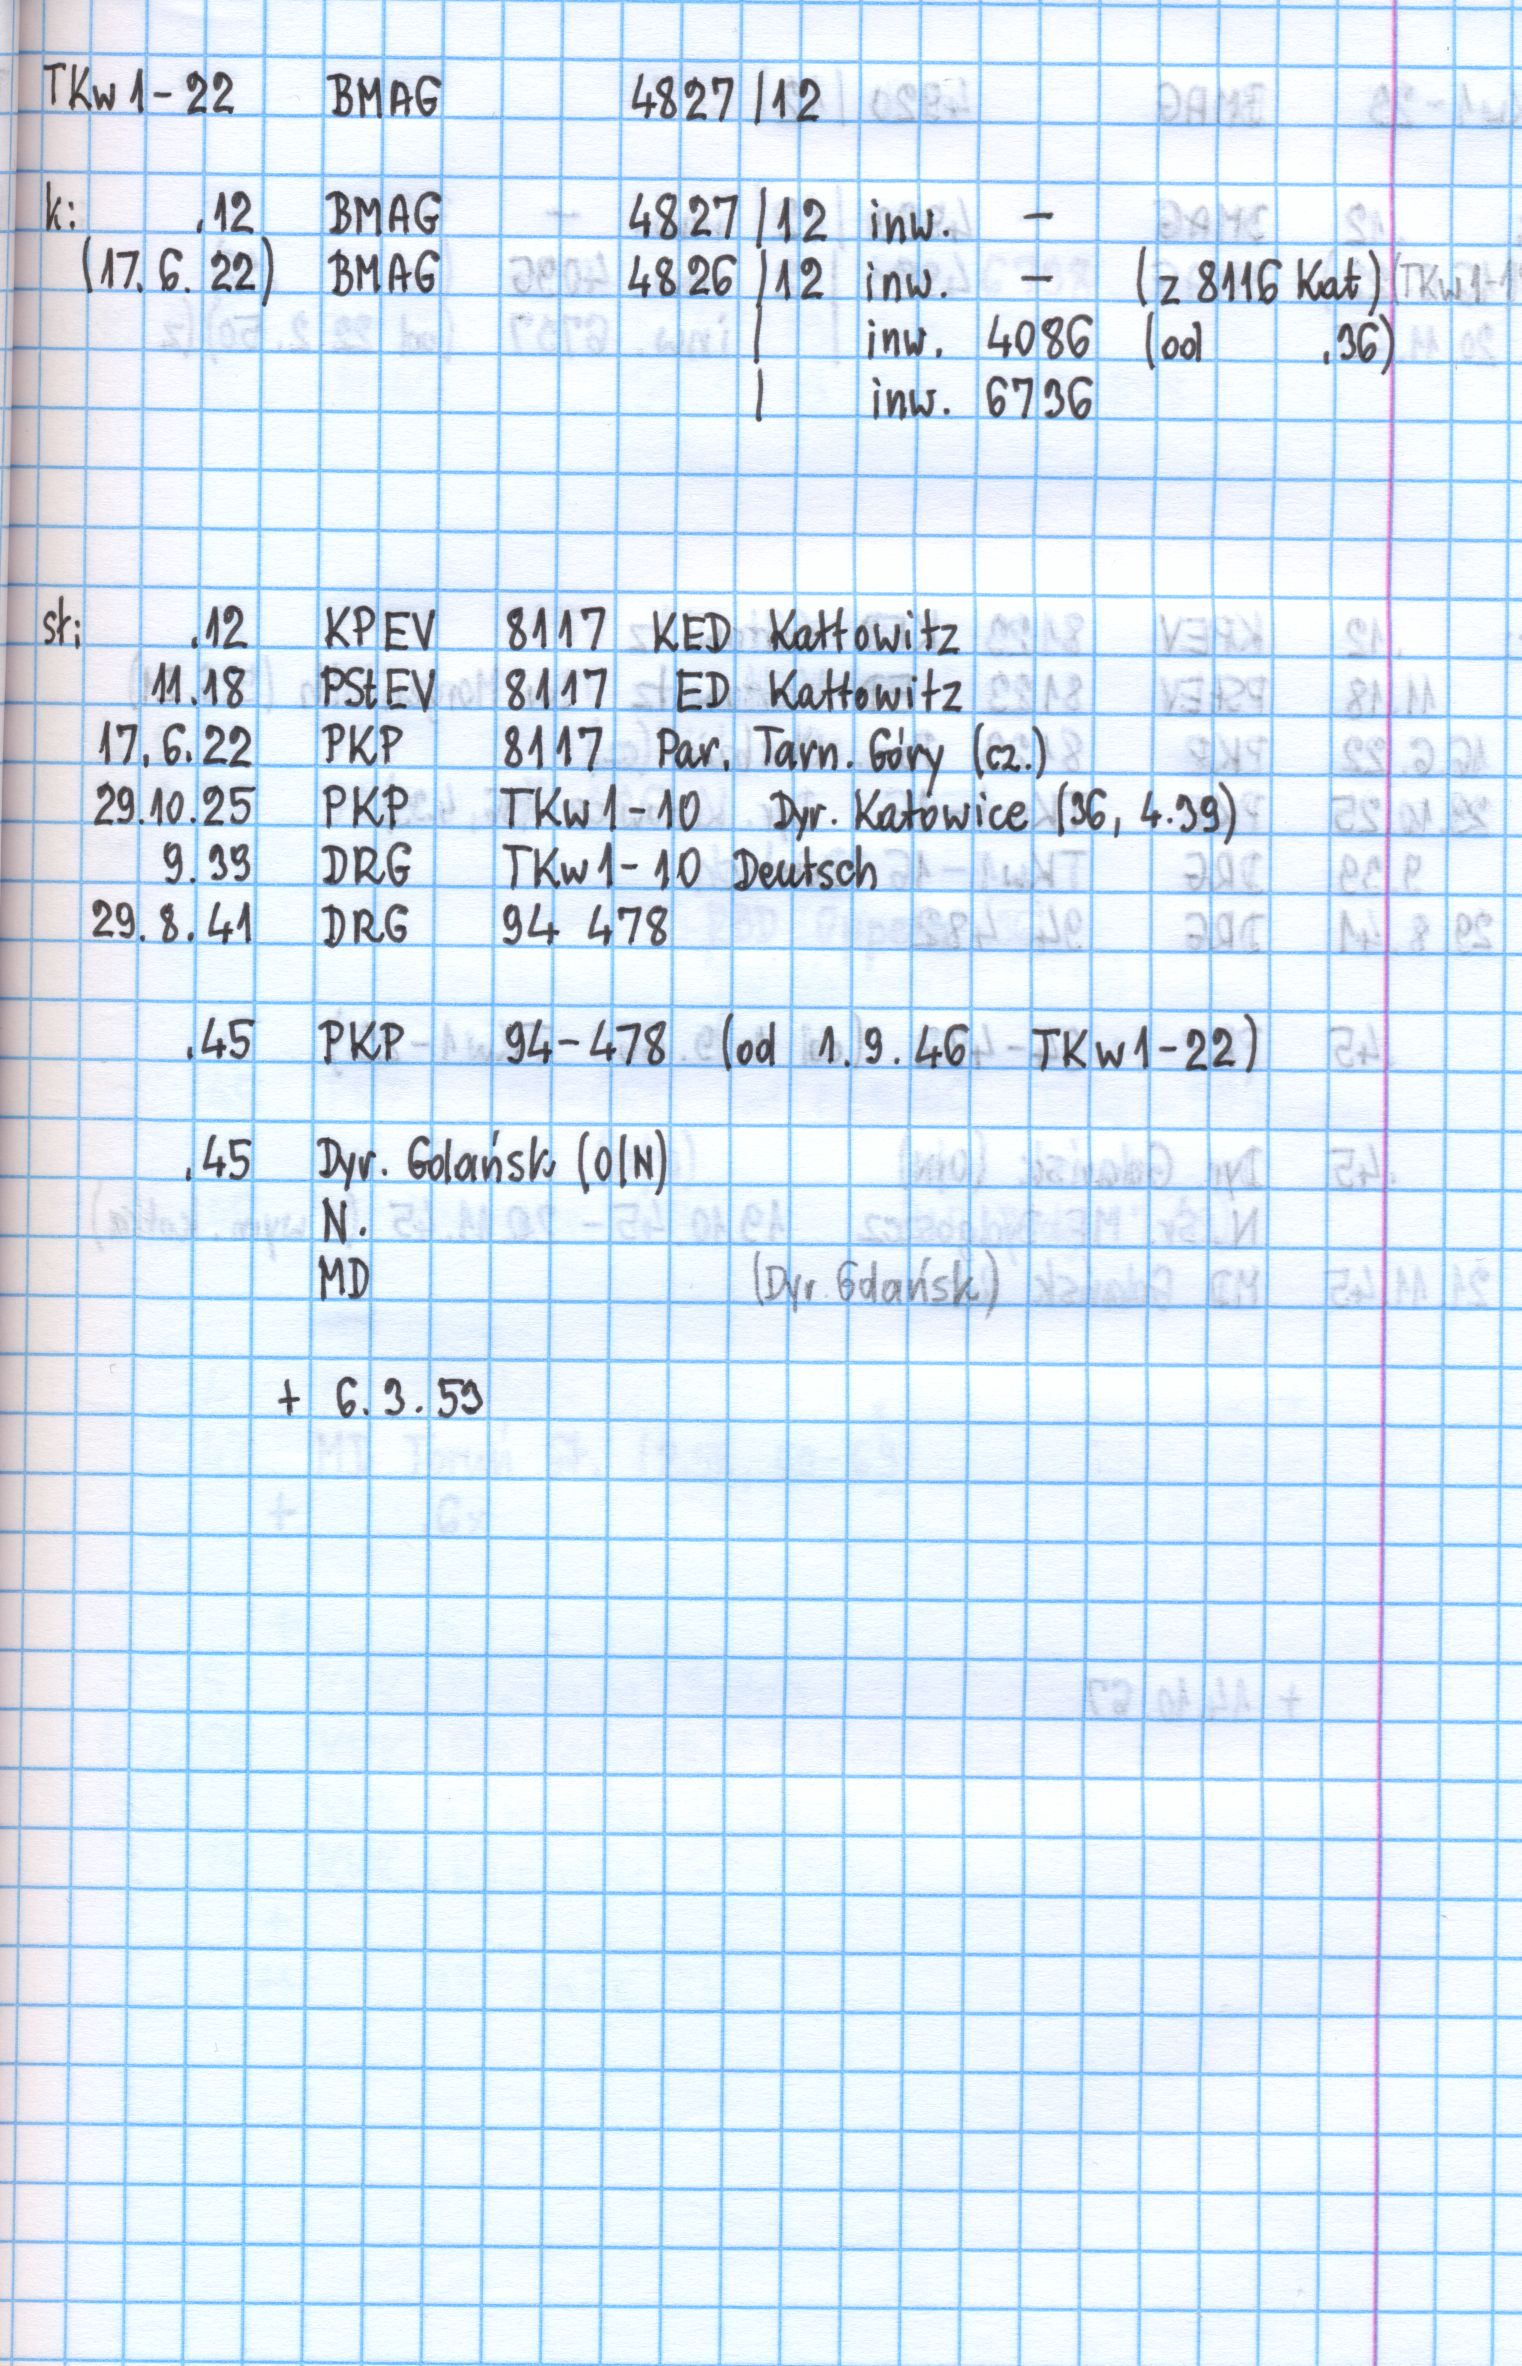 TKw1-22 BMAG 4827/12
k: .12 BMAG 4827/12 inw. -
(17.6.22) BMAG 4826/12 inw. - (z 8116 Kat) (TKw1-1
| inw. 4086 (od .36)
| inw. 6736
st: .12 KPEV 8117 KED Kattowitz
11.18 PStEV 8117 ED Kattowitz
17.6.22 PKP 8117 Par. Tarn. Góry (cz.)
29.10.25 PKP TKw1-10 Dyr. Katowice (36, 4.39)
9.39 DRG TKw1-10 Deutsch
29.8.41 DRG 94 478
.45 PKP 94-478 (od 1.9.46 TKw1-22)
.45 Dyr. Gdańsk (O/N)
N.
MD (Dyr. Gdańsk)
+ 6.3.59